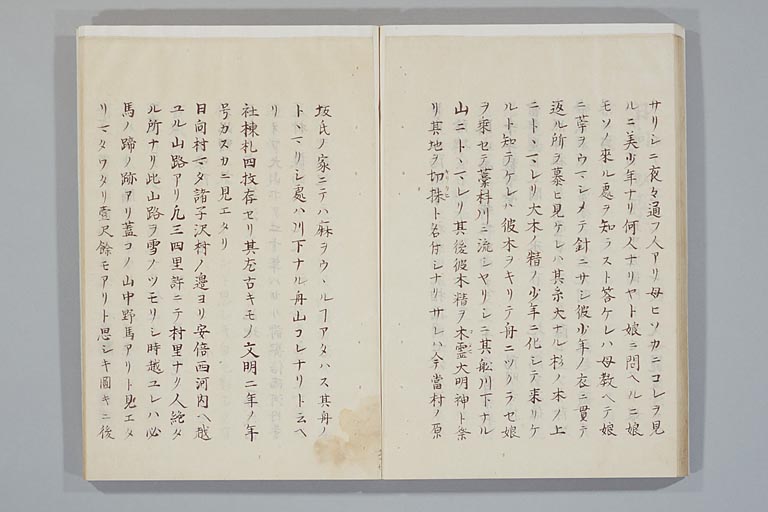 サリシニ夜々通フ人アリ母ヒソカニコレヲ見
ルニ美少年ナリ何人ナリヤト娘ニ問ヘルニ娘
モソノ來ル處ヲ知ラスト答ケレハ母教ヘテ娘
ニ苧ヲウマシメテ針ニサシ彼少年ノ衣ニ貫テ
返ル所ヲ慕ヒ見ケレハ其糸大ナル杉ノ木ノ上
ニトヽマレリ大木ノ精ノ少年ニ化シテ來リケ
ルト知テケレハ彼木ヲキリテ舟ニツクラセ娘
ヲ乗セテ藁科川ニ流シヤリシニ其舩川下ナル
山ニトヽマレリ其後彼木精ヲ木霊大明神ト祭
リ其地ヲ切株ト名付シナリサレハ今當村ノ原
坂氏ノ家ニテハ麻ヲウヽルフアタハス其舟ノ
トヽマリシ處ハ川下ナル舟山コレナリト云ヘ
リ
社棟札四枚存セリ其尤古キモノ文明二年ノ年
号カスカニ見エタリ
日向村マタ諸子沢村ノ邊ヨリ安倍西河内ヘ越
ユル山路アリ凡三四里許ニテ村里ナク人絶タ
ル所ナリ此山路ヲ雪ノツモリシ時越ユレハ必
馬ノ蹄ノ跡アリ蓋コノ山中野馬アリト見エタ
リマタワタリ壹尺餘モアリト思シキ圓キニ後